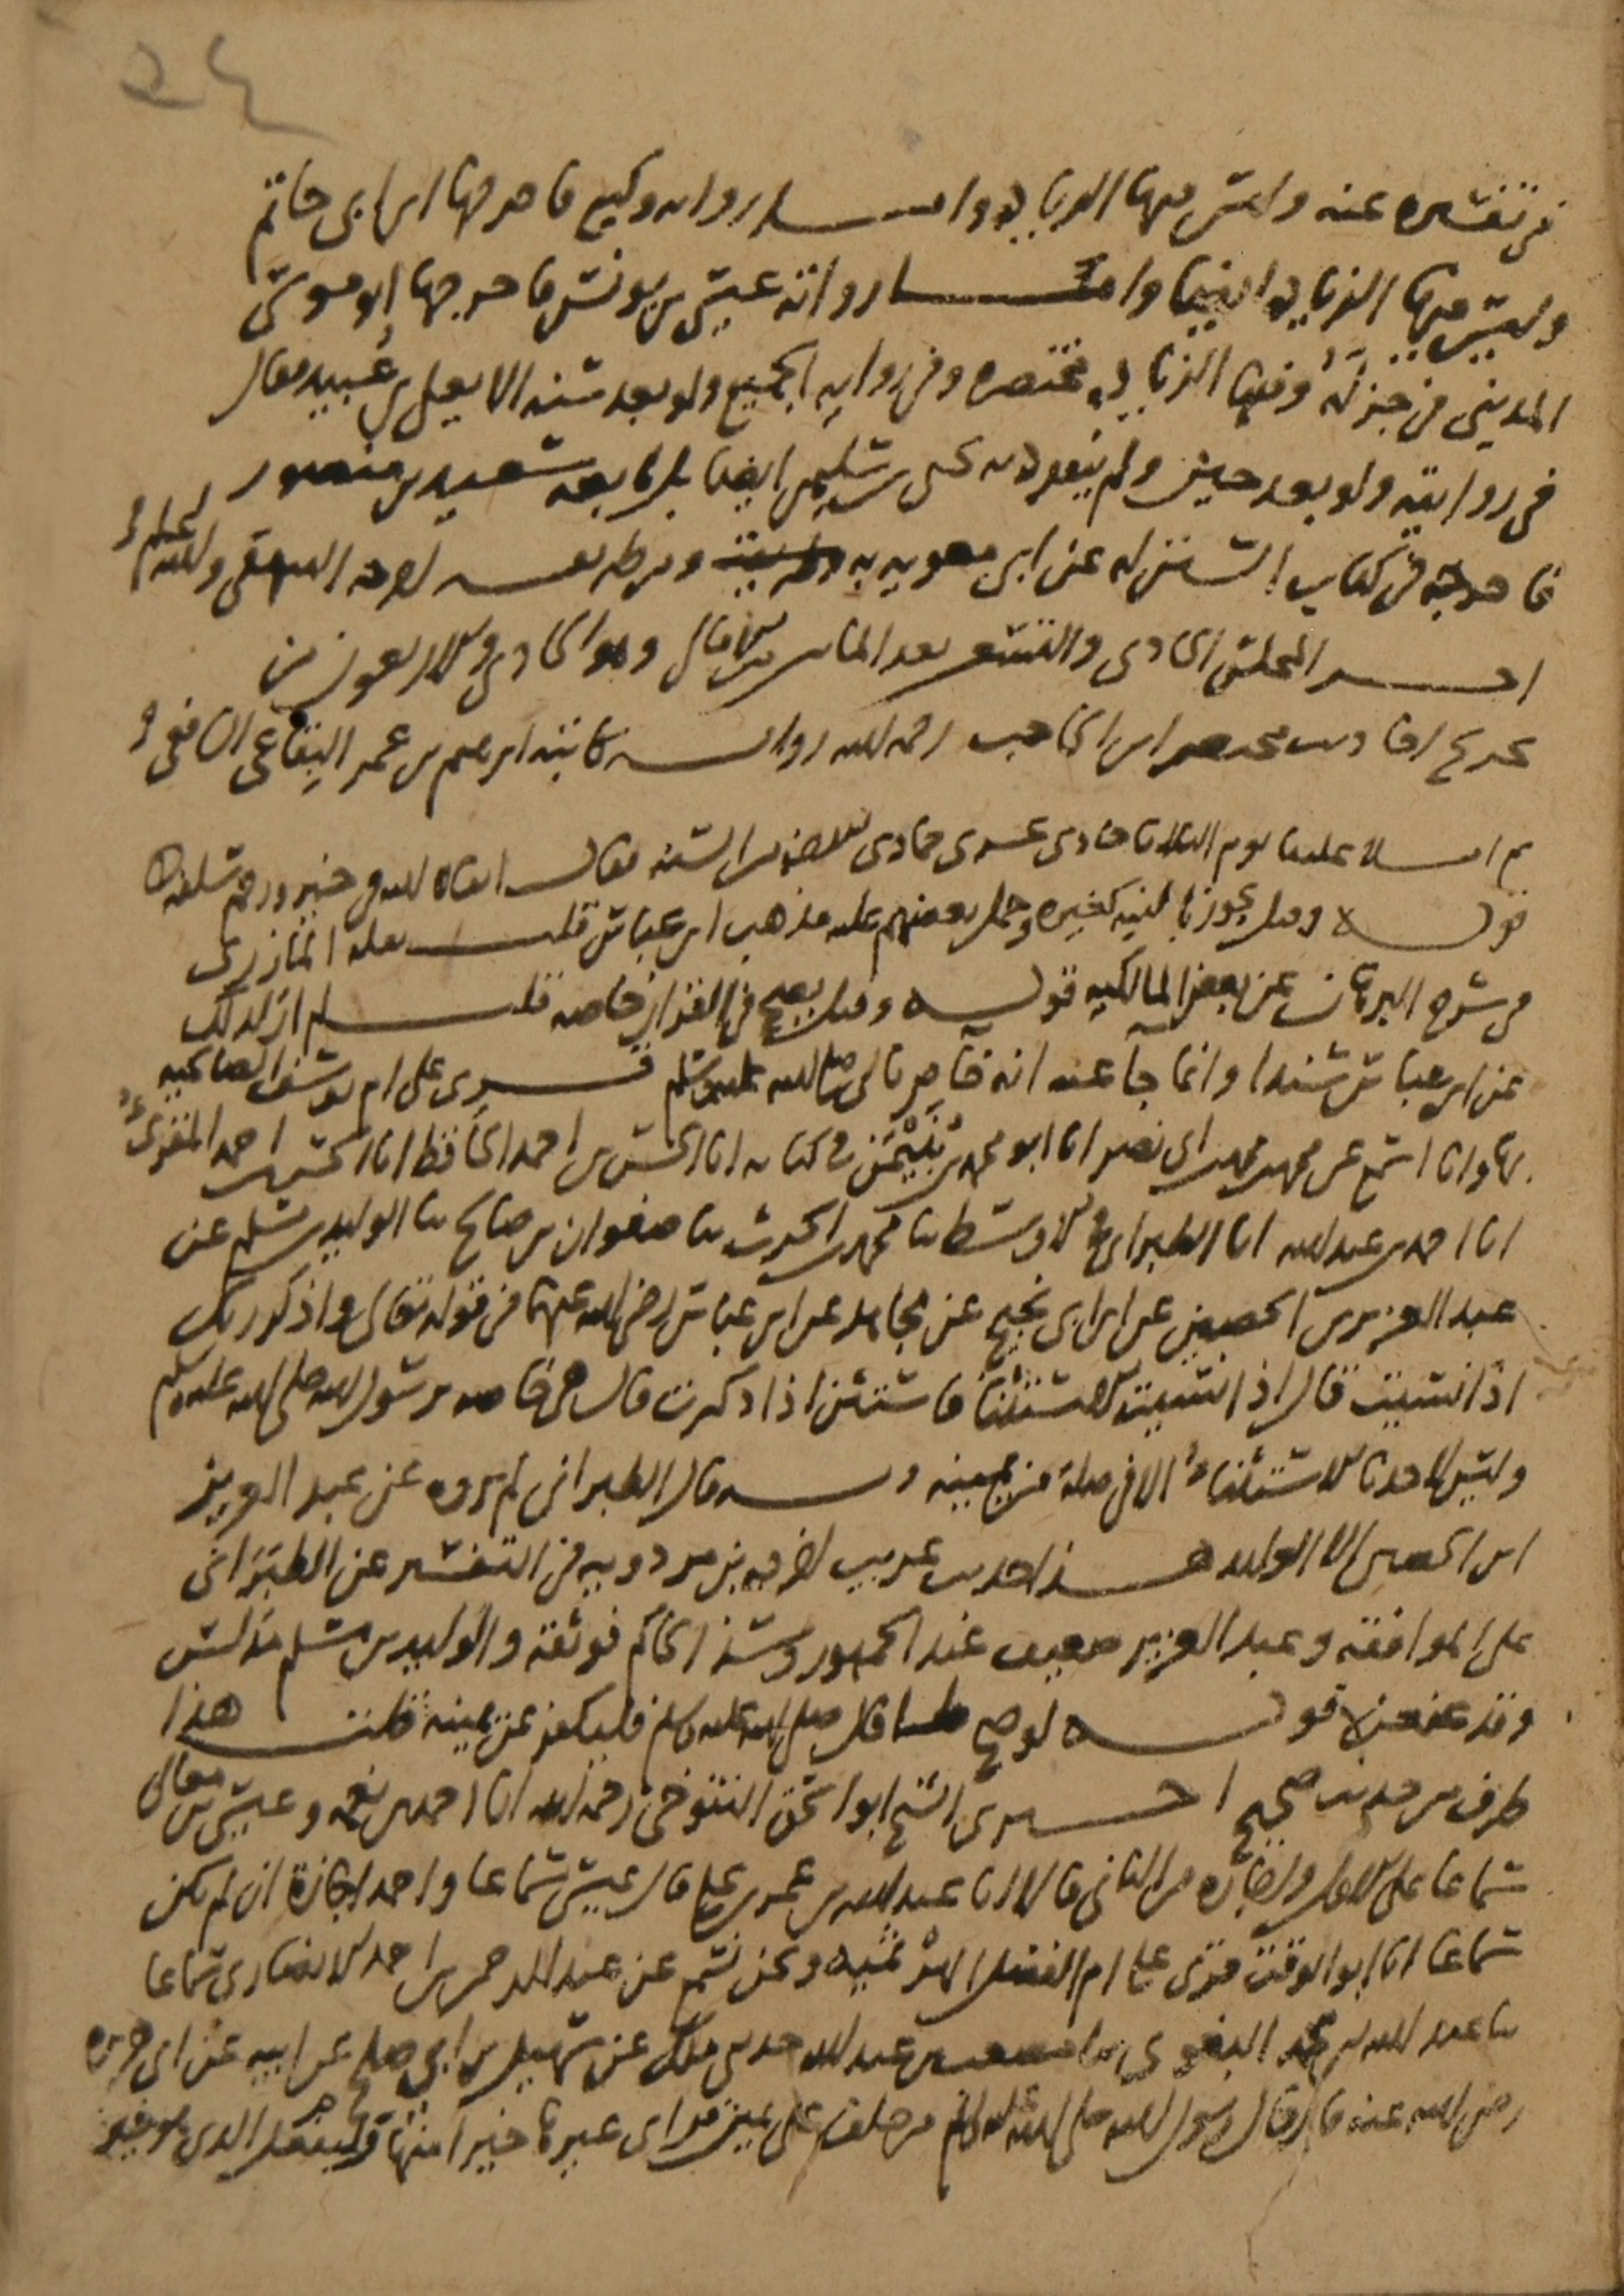 في تفسيره عنه وليس فيها الزيادة وأما رواية وكيع فأخرجها ابن أبي حاتم
وليس فيها الزيادة أيضا وأما رواية عيسى بن يونس فأخرجها أبو موسى
المديني في جزئه وفيها الزيادة مختصرة وفي رواية الجميع ولو بعد سنة إلا يعلى بن عبيد فقال
في روايته ولو بعد حين ولم ينفرد به يحيى بن سليمان أيضا بل تابعه سعيد بن منصور
فأخرجه في كتاب السنن له عن أبي معوية به ومن طريقه أخرجه البيهقي والله أعلم
آخر المجلس الحادي والتسعين بعد المائة قال وهو الحادي والأربعون من
تخريج أحاديث مختصر ابن الحاجب رحمه الله رواية كاتبه إبراهيم بن عمر البقاعي الشافعي
ثم املا علينا يوم الثلاثا حادي عشري جمادى من السنة فقال ابقاه الله في خير ورحم سلفه
قوله وقيل يجوز بالنية كغيره وحمل بعضهم عليه مذهب ابن عباس قلت نقله المازري
في شرح البرهان عن بعض المالكية قوله وقيل يصح في القرآن خاصة قلت لم ار ذلك
عن ابن عباس مسندا وانما جا عنه انه خاص بالنبي صلى الله عليه وسلم قرى على ام يوسف الصالحية
بها وانا اسمع عن محمد بن محمد بن ابي نصر انا ابو محمد بن بنيمن في كتابه انا الحسن بن احمد الحافظ انا الحسن بن احمد المقرئ
انا احمد بن عبد الله انا الطبراني في الاوسط ثنا محمد بن الحرث ثنا صفوان بن صالح ثنا الوليد بن مسلم عن
عبد العزيز بن الحصين عن ابن ابي نجيح عن مجاهد عن ابن عباس رضي الله عنهما في قوله تعالى واذكر ربك
اذا نسيت قال اذا نسيت الاستثناء فاستثن اذا ذكرت قال هي خاصة برسول الله صلى الله عليه وسلم
وليس لاحدنا الاستثناء الا في صلة من يمينه وبه قال الطبراني لم يروه عن عبد العزيز
ابن الحصين الا الوليد هذا حديث غريب اخرجه ابن مردويه في التفسير عن الطبراني
على الموافقة وعبد العزيز ضعيف عند الجمهور وشذ الحاكم فوثقه والوليد بن مسلم مدلس
وقد عنعن قوله لو صح لما قال صلى الله عليه وسلم فليكفر عن يمينه قلت هذا
طرف من حديث صحيح اخبرني الشيخ ابو اسحق التنوخي رحمه الله انا احمد بن نعمة وعيسى بن معالي
سماعا على الاول واجازة من الثاني قالا انا عبد الله بن عمر بن علي قال عيسى سماعا واحمد اجازة ان لم يكن
سماعا انا ابو الوقت قرى على ام الفضل الهرثمية ونحن نسمع عن عبد الرحمن بن احمد الانصاري سماعا
ثنا عبد الله بن محمد البغوي ثنا مصعب بن عبد الله حدثني ملك عن سهيل بن ابي صالح عن ابيه عن ابي هريرة
رضي الله عنه قال قال رسول الله صلى الله عليه وسلم من حلف على يمين فراى غيرها خيرا منها فليفعل الذي هو خير